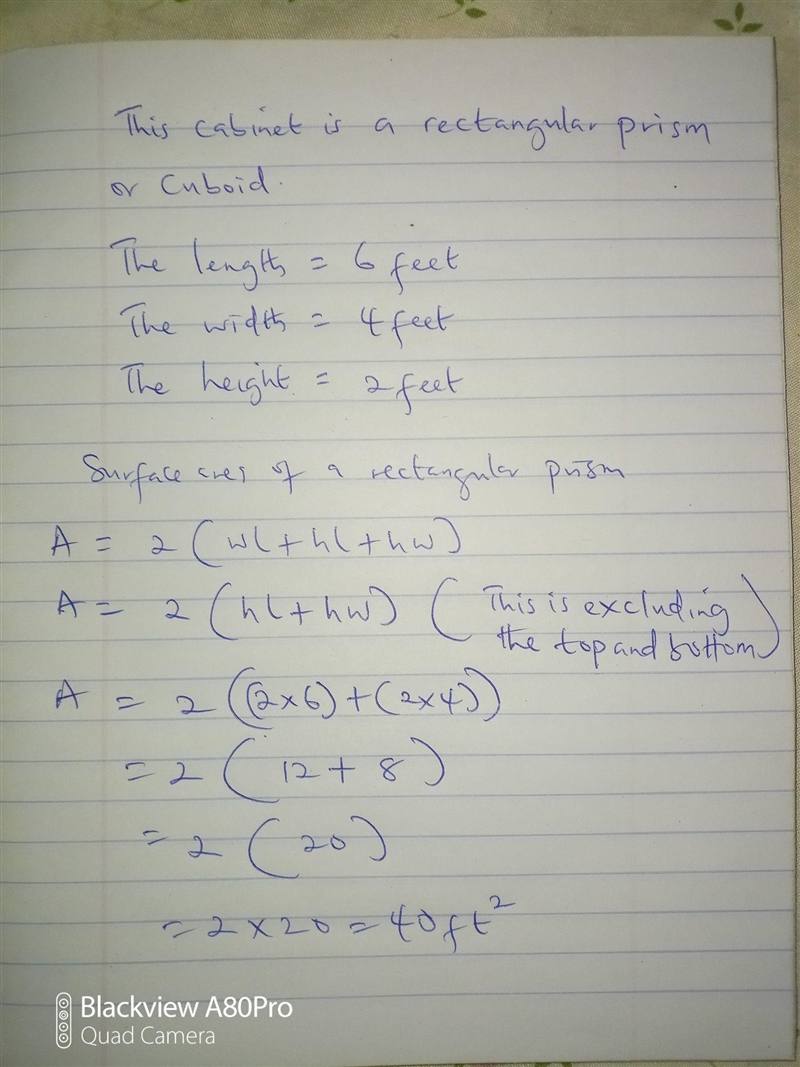 This cabinet is a rectangular prism
or Cuboid.
The length = 6 feet
The width = 4 feet
The height = 2 feet
Surface area of a rectangular prism
A = 2 (wl + hl + hw)
A = 2 (hl + hw) (This is excluding
the top and bottom)
A = 2 ((2x6) + (2x4))
= 2 (12 + 8)
= 2 (20)
= 2 x 20 = 40ft²
Blackview A80Pro
Quad Camera